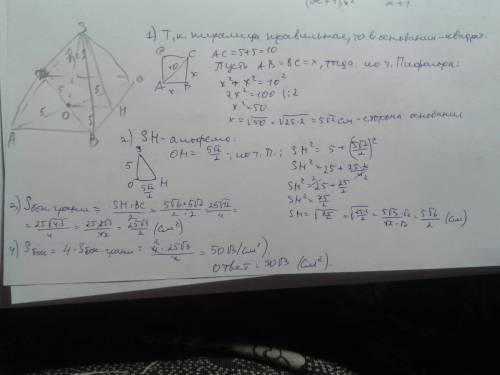 1) Т.к. пирамида правильная, то в основании - квадрат.
AC=5+5=10
Пусть AB=BC=x, тогда по т. Пифагора:
x²+x²=10²
2x²=100 |:2
x²=50
x=√50=√25·2=5√2 см - сторона основания
S
h=5
5
5
5
5
O
A
B
H
C
10
x
A
B
x
2) SH - апофема.
OH=5√2/2; по т. П.:
5
O
5√2/2
H
SH²=5+(5√2/2)²
SH²=25+25·2/4
SH²=25+25/2
SH²=75/2
SH=√75/2=√25·3/2=5√3·√2/√2·√2=5√6/2 (см)
3) Sбок.грани=SH·BC/2=5√6·5√2/2·2=25√12/4=
=25√4·3/4=25·2√3/4=25√3/2 (см²)
4) Sбок=4·Sбок.грани=4·25√3/2=50√3 (см²)
Ответ: 50√3 (см²).